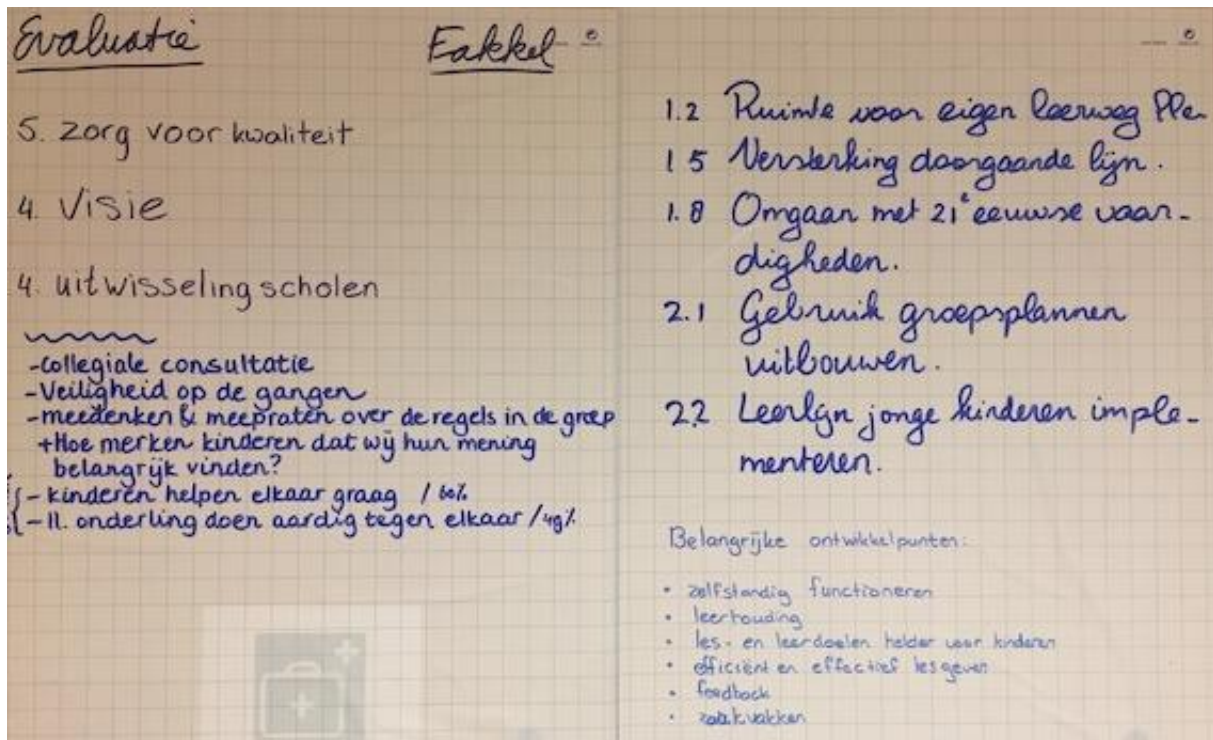 Evaluatie Fakkel
5. zorg voor kwaliteit
4. Visie
4. uitwisseling scholen
-Collegiale consultatie
-Veiligheid op de gangen
-meedenken & meepraten over de regels in de groep
+Hoe merken kinderen dat wij hun mening
belangrijk vinden?
- kinderen helpen elkaar graag / 60%
- ll. onderling doen aardig tegen elkaar / 49%
1.2 Ruimte voor eigen leerweg lle.
1.5 Versterking doorgaande lijn.
1.8 Omgaan met 21e eeuwse vaar-
digheden.
2.1 Gebruik groepsplannen
uitbouwen.
2.2 Leerlijn jonge kinderen imple-
menteren.
Belangrijke ontwikkelpunten:
• zelfstandig functioneren
• leerhouding
• les- en leerdoelen helder voor kinderen
• efficiënt en effectief lesgeven
• feedback
• zaakvakken